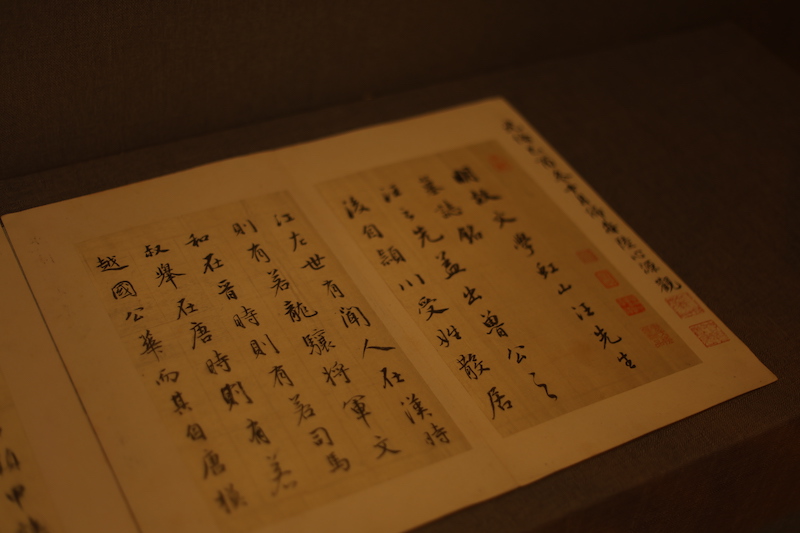 深觀
明故文學虹山汪先生
墓誌銘
汪之先蓋出魯公之
後自潁川受姓散居
江左世有聞人在漢時
則有若龍驤將軍文
和在晉時則有若司馬
叔舉在唐時則有若
越國公華而其自唐